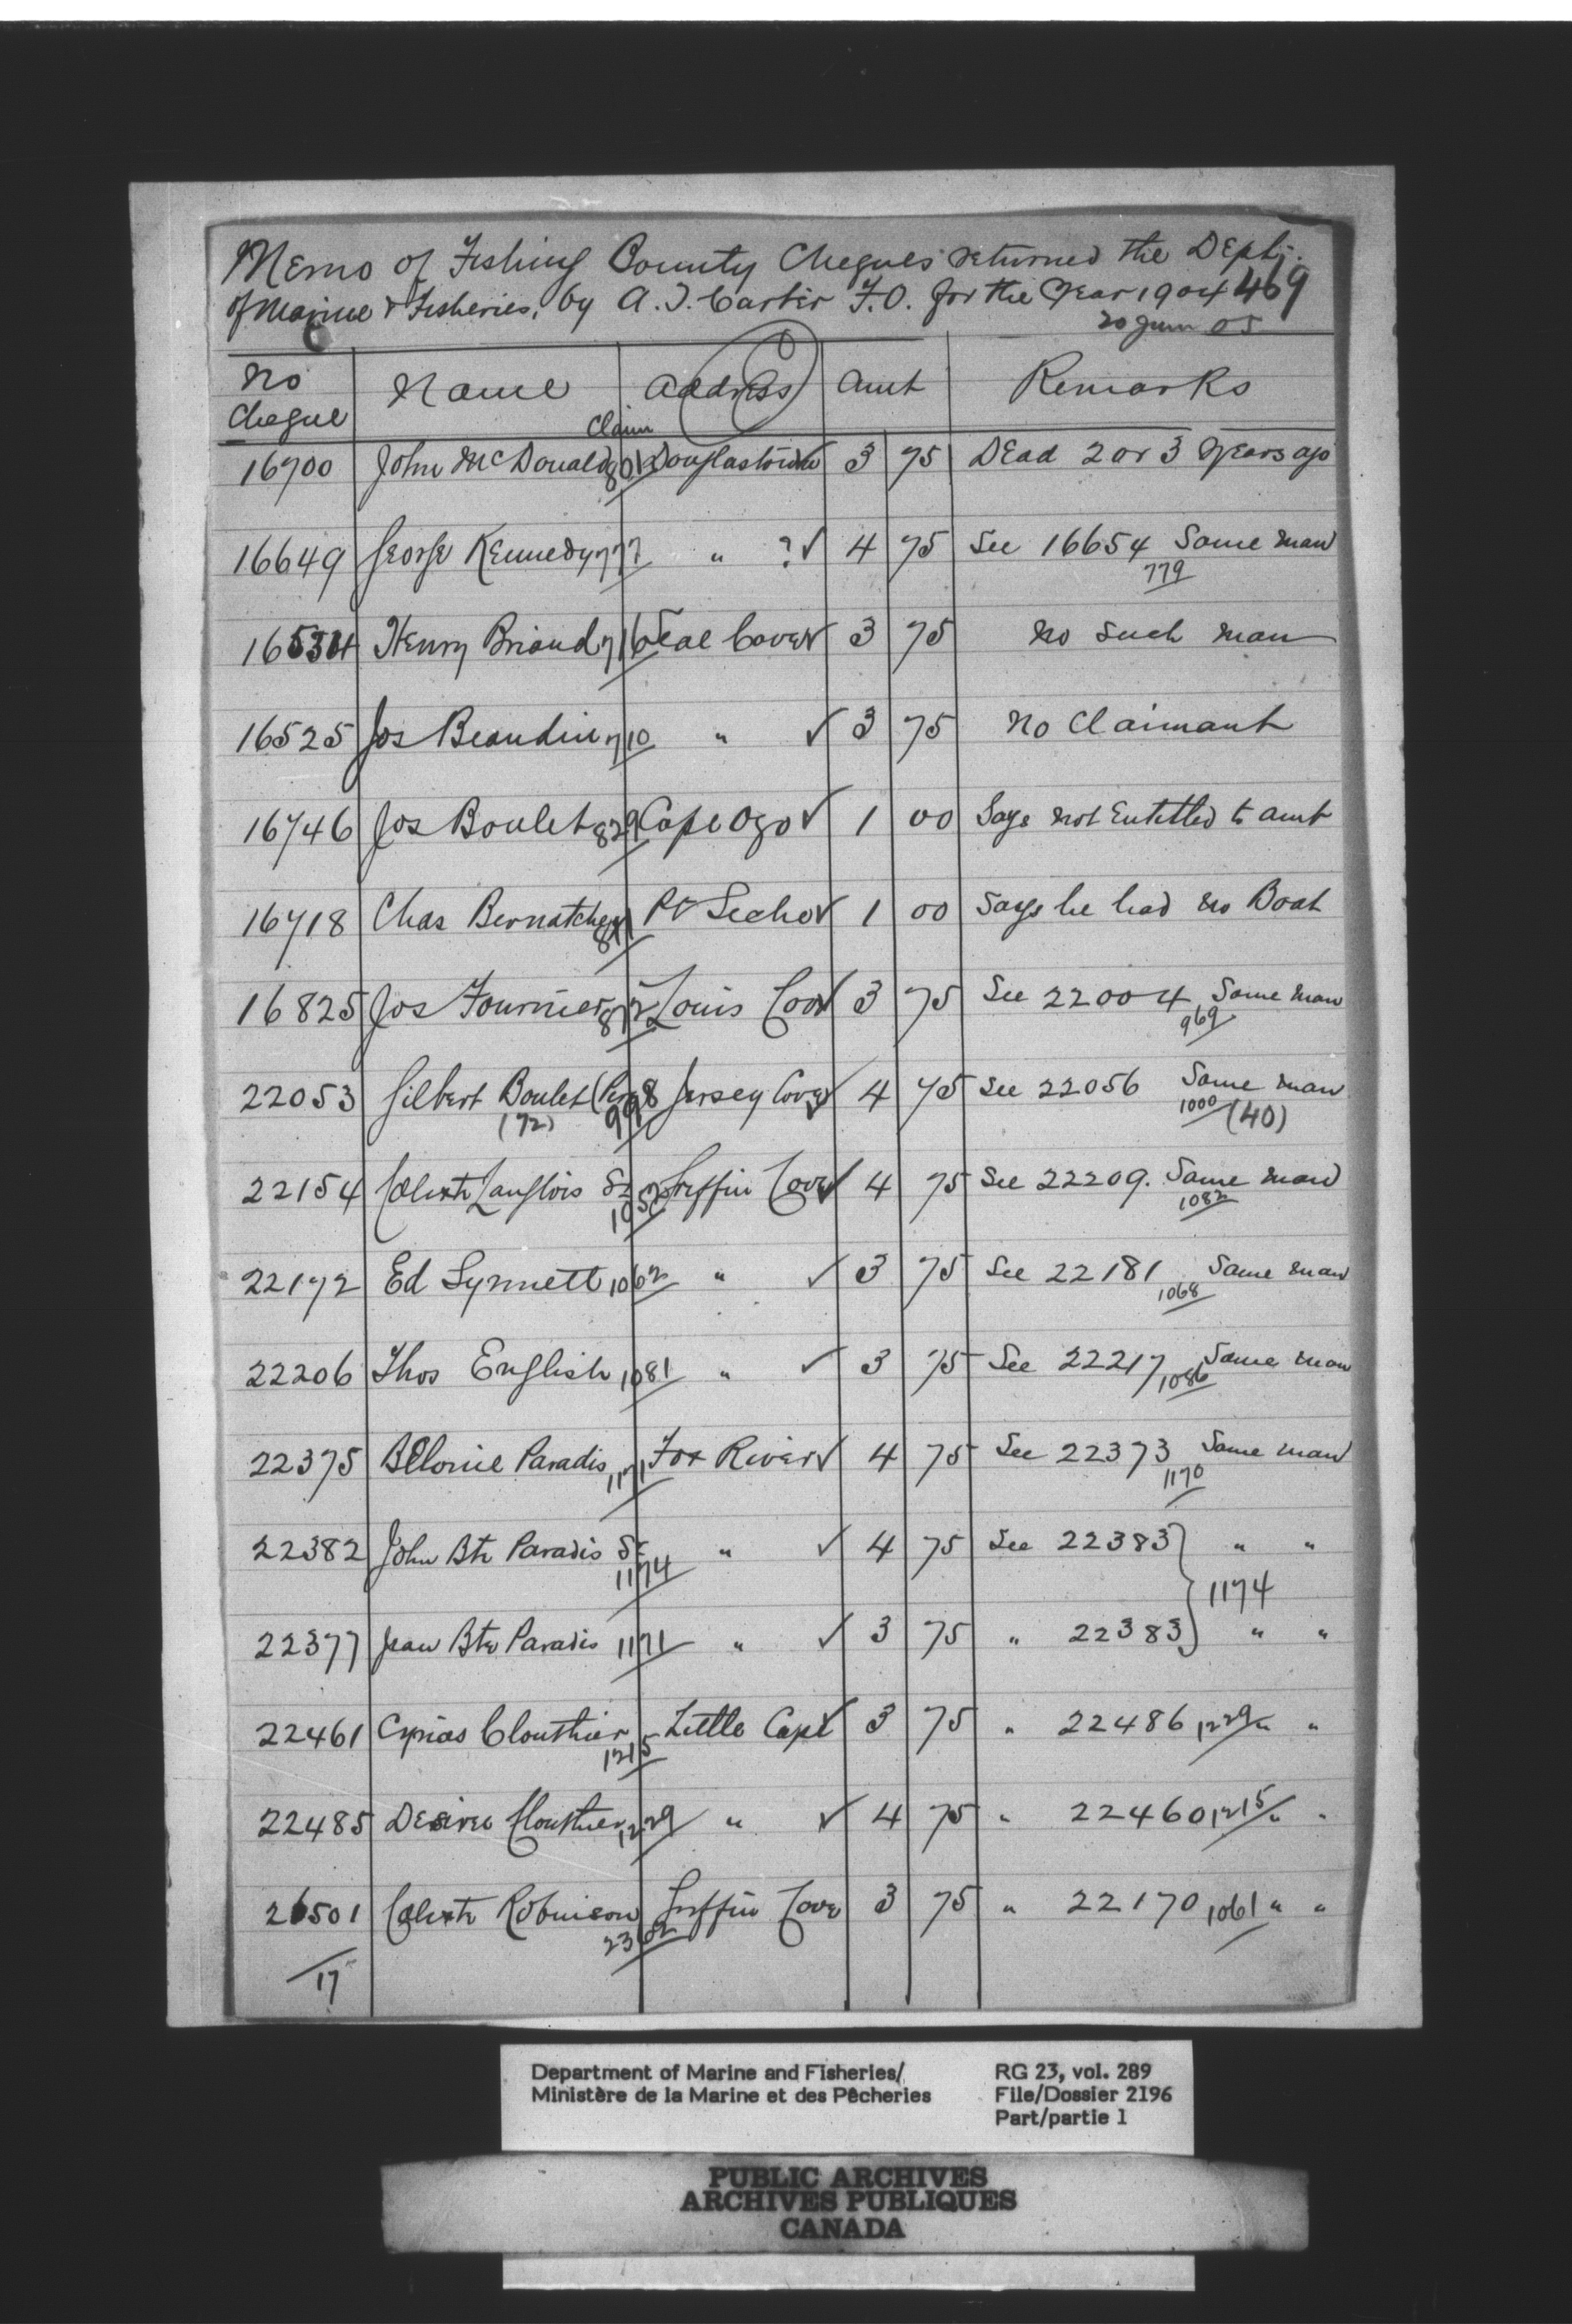 Memo of Fishing Bounty Cheques returned the Dept.
of Marine & Fisheries, by A. J. Carter F.O. for the Year 1904 469
20 June 05
No Cheque Name Claim Address Amt Remarks
16700 John McDonald 801 Douglastown ✓ 3 75 Dead 2 or 3 years ago
16649 George Kennedy 777 " ? ✓ 4 75 See 16654 Same man
779
16534 Henry Briand 716 Seal Cove ✓ 3 75 No such man
16525 Jos Beaudin 710 " ✓ 3 75 No Claimant
16746 Jos Boulet 829 Cape Ozo ✓ 1 00 Says not Entitled to amt
16718 Chas Bernatchez 811 Pt Seche ✓ 1 00 Says he had no Boat
16825 Jos Fournier 872 Louis Cove ✓ 3 75 See 22004 Same man
969
22053 Gilbert Boulet 998 Jersey Cove ✓ 4 75 See 22056 Same man
(72) 1000 (40)
22154 Calixte Langlois Sr 1052 Griffin Cove ✓ 4 75 See 22209. Same man
1082
22172 Ed Synnett 1062 " ✓ 3 75 See 22181 Same man
1068
22206 Thos English 1081 " ✓ 3 75 See 22217 Same man
1086
22375 Bélonie Paradis 1171 Fox River ✓ 4 75 See 22373 Same man
1170
22382 John Bte Paradis Sr " ✓ 4 75 See 22383 " "
1174 1174
22377 Jean Bte Paradis 1171 " ✓ 3 75 " 22383 " "
22461 Cyrias Clouthier 1215 Little Cape ✓ 3 75 " 22486 1229 " "
22485 Desiree Clouthier 1229 " ✓ 4 75 " 22460 1215 " "
26501 Calixte Robinson 2362 Griffin Cove 3 75 " 22170 1061 " "
17
Department of Marine and Fisheries/
Ministère de la Marine et des Pêcheries
RG 23, vol. 289
File/Dossier 2196
Part/partie 1
PUBLIC ARCHIVES
ARCHIVES PUBLIQUES
CANADA